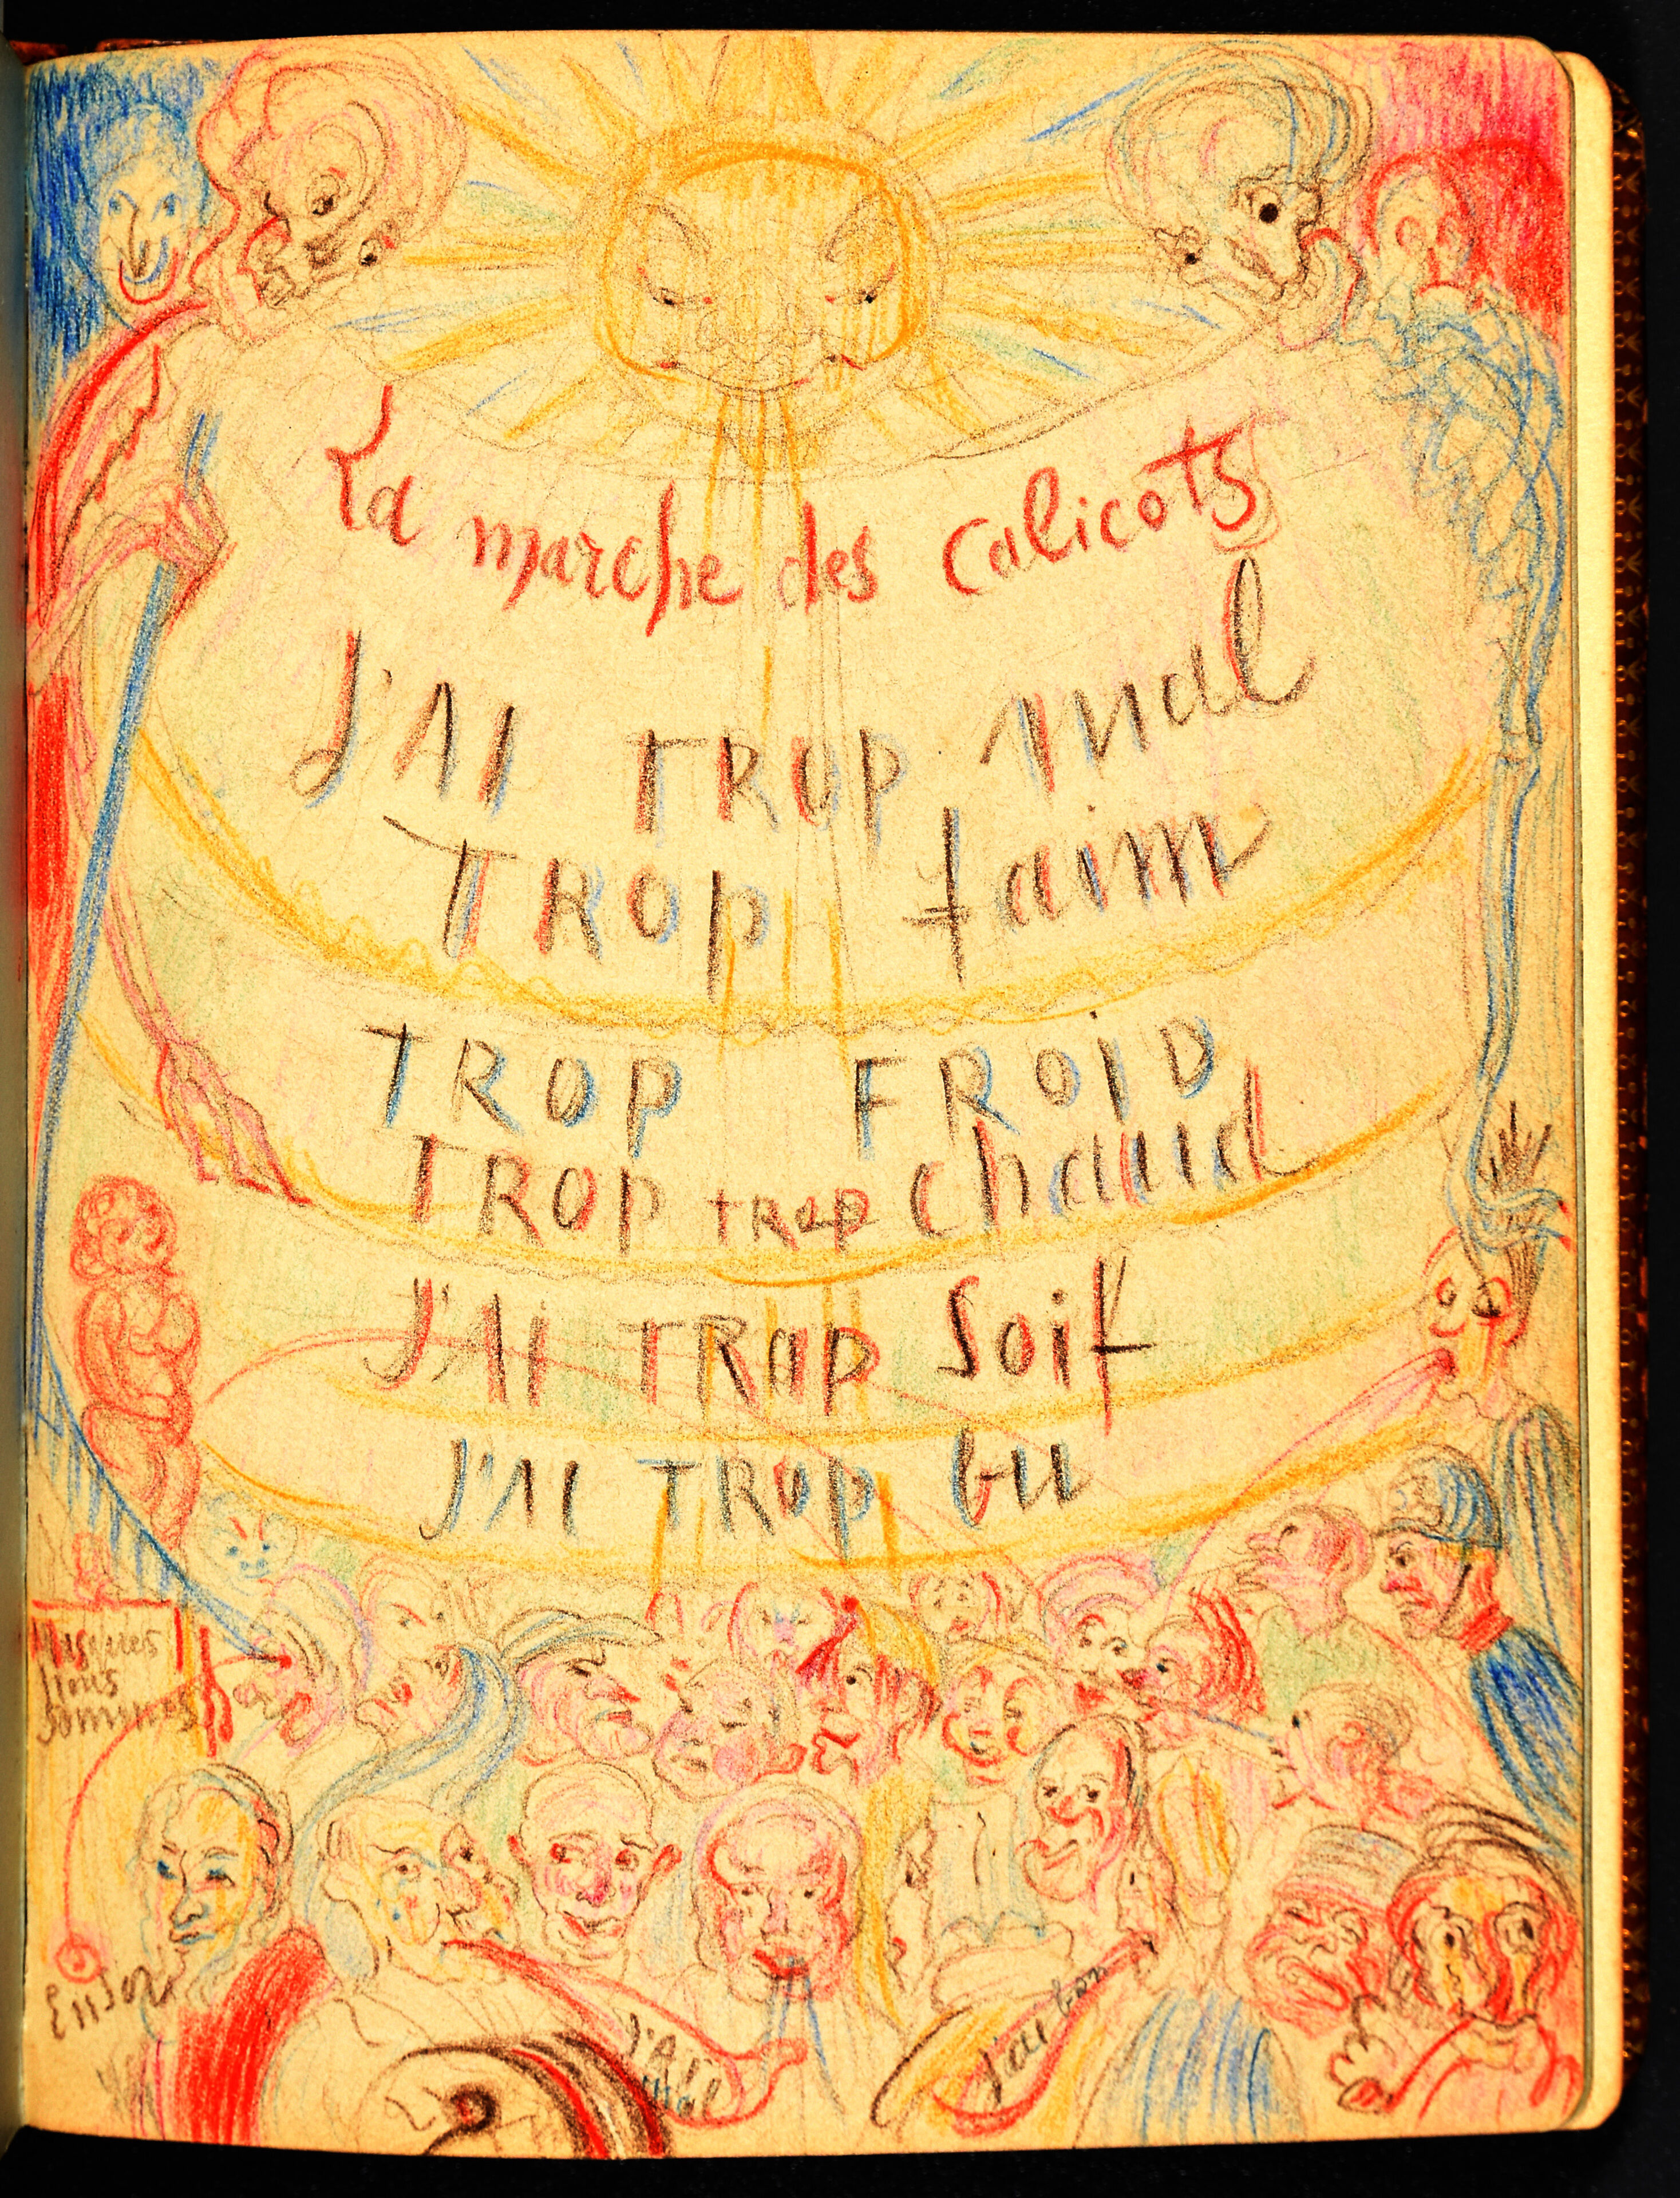 La marche des calicots
J'AI TROP mal
TROP faim
TROP FROID
TROP TROP chaud
J'Ai TROP Soif
J'AI TROP bu
nous
sommes
Ensor
J'AI
mal
j'ai bon